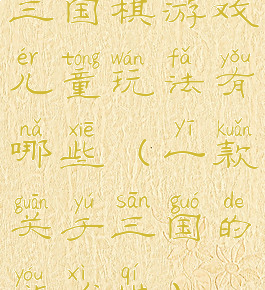 三国棋游戏
ér tóng wán fǎ yǒu
儿童玩法有
nǎ xiē yī kuǎn
哪些（一款
guān yú sān guó de
关于三国的
yóu xì qí